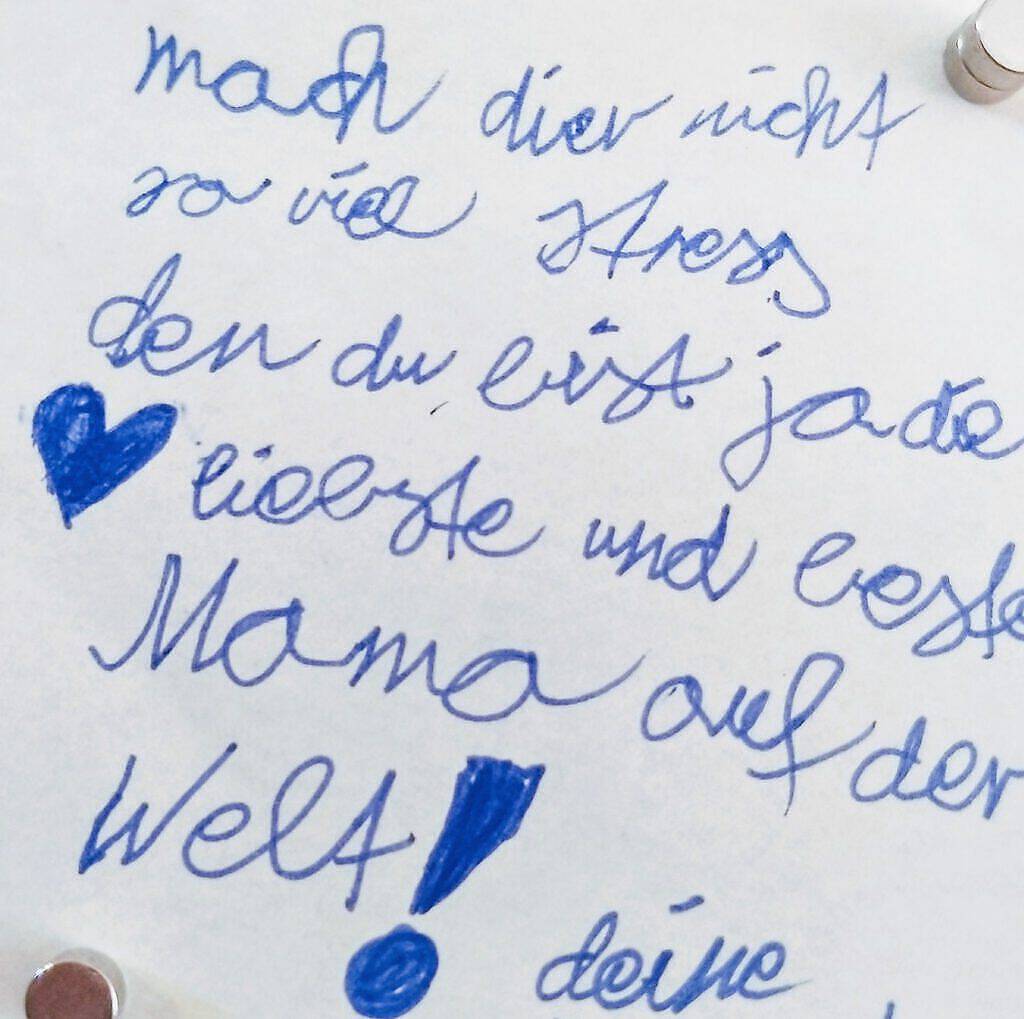 mach dier nicht
so viel stress
den du bist ja die
liebste und beste
Mama auf der
Welt!
deine